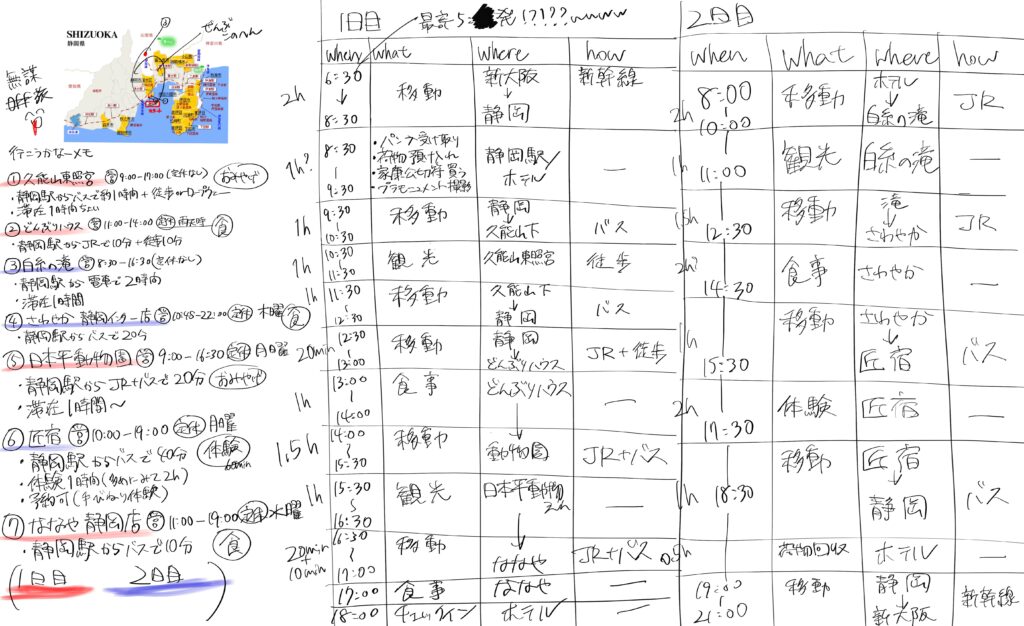 SHIZUOKA
静岡県
ぜんぶ
このへん
無謀
行こうかなーメモ
①久能山東照宮 営9:00-17:00(定休なし) おみやげ
・静岡駅からバスで約1時間+徒歩orロープウェー
・滞在1時間ちょい
②どんぶりハウス 営11:00-14:00 定休 雨天時 食
・静岡駅からJRで10分+徒歩10分
③白糸の滝 営8:30-16:30(定休なし)
・静岡駅から電車で2時間
・滞在1時間
④さわやか 静岡インター店 営10:45-22:00 定休 木曜 食
・静岡駅からバスで20分
⑤日本平動物園 営9:00-16:30 定休 月曜
・静岡駅からJR+バスで20分 おみやげ
・滞在1時間〜
⑥匠宿 営10:00-19:00 定休 月曜
・静岡駅からバスで40分 体験
・体験1時間(多めにみて2h)
・予約可(手びねり体験)
⑦ななや 静岡店 営11:00-19:00 定休 水曜
・静岡駅からバスで10分 食
(1日目 2日目)
1日目 最寄5: 発!?!??wwww
when what where how
2h 6:30 ↓ 8:30 移動 新大阪 ↓ 静岡 新幹線
1h? 8:30 9:30 ・パンフ受け取り
・荷物預け入れ
・家康公切符買う
・プラモニュメント撮影
静岡駅/ホテル
1h 9:30 10:30 移動 静岡 ↓ 久能山下 バス
1h 10:30 11:30 観光 久能山東照宮 徒歩
1h 11:30 12:30 移動 久能山下 ↓ 静岡 バス
20min 12:30 13:00 移動 静岡 ↓ どんぶりハウス JR+徒歩
1h 13:00 14:00 食事 どんぶりハウス —
1.5h 14:00 15:30 移動 動物園 JR+バス
1h 15:30 16:30 観光 日本平動物園 —
20min+10min 16:30 17:00 移動 ななや JR+バス
17:00 食事 ななや —
18:00 チェックイン ホテル —
2日目
when what where how
2h 8:00 10:00 移動 ホテル ↓ 白糸の滝 JR
11:00 観光 白糸の滝 —
1.5h 12:30 移動 滝 ↓ さわやか JR
2h? 14:30 食事 さわやか —
1h 15:30 移動 さわやか ↓ 匠宿 バス
2h 17:30 体験 匠宿 —
1h 18:30 移動 匠宿 ↓ 静岡 バス
0.5h 荷物回収 ホテル —
19:00 21:00 移動 静岡 ↓ 新大阪 新幹線